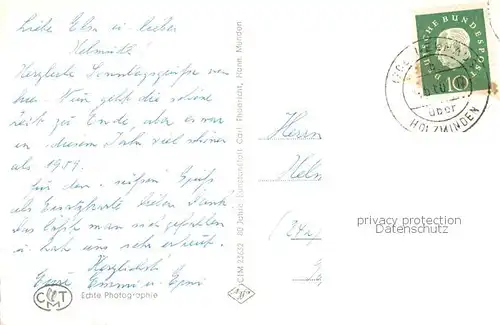 Liebe Elsa u. lieber
Helmuth!
Herzliche Sonntagsgrüße von
hier. Nun geht die schöne
Zeit zu Ende, aber es war
in diesem Jahr viel schöner
als 1959.
Für den süßen Gruß
als Ersatzkarte lieben Dank!
Das läßt man sich gefallen
u. hat uns sehr erfreut.
Herzlichst
Emmi u.
CTM
Echte Photographie
CTM 23632 80 Jahre Carl Thoericht, Hann. Münden
DEUTSCHE BUNDESPOST
10
über
HOLZMINDEN
Herrn
(24a)
privacy protection
Datenschutz